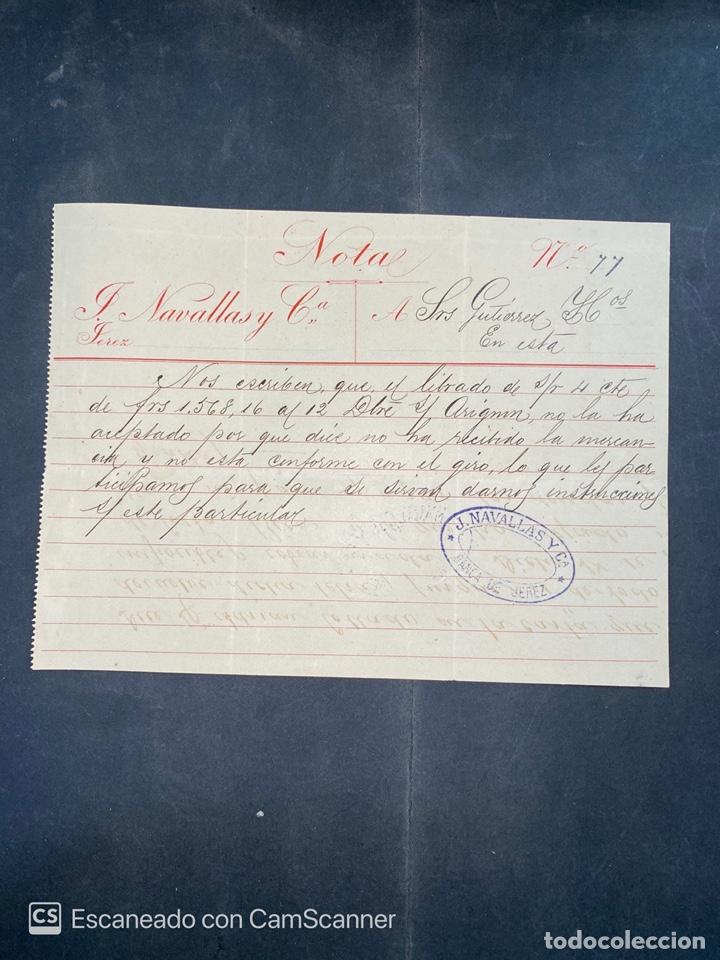 Nota
Nº 77
J. Navallas y Cª
Jerez
A Srs Gutiérrez Hos
En esta
Nos escriben, que el librado de s/r 4 cte
de frs 1.568,16 a/ 12 Dbre s/ no la ha
aceptado por que dice no ha recibido la mercan-
cia y no está conforme con el giro, lo que les par
ticipamos para que se sirvan darnos instrucciones
s/ este particular
* J. NAVALLAS Y Cª *
BANCA DE JEREZ
CS Escaneado con CamScanner
todocoleccion